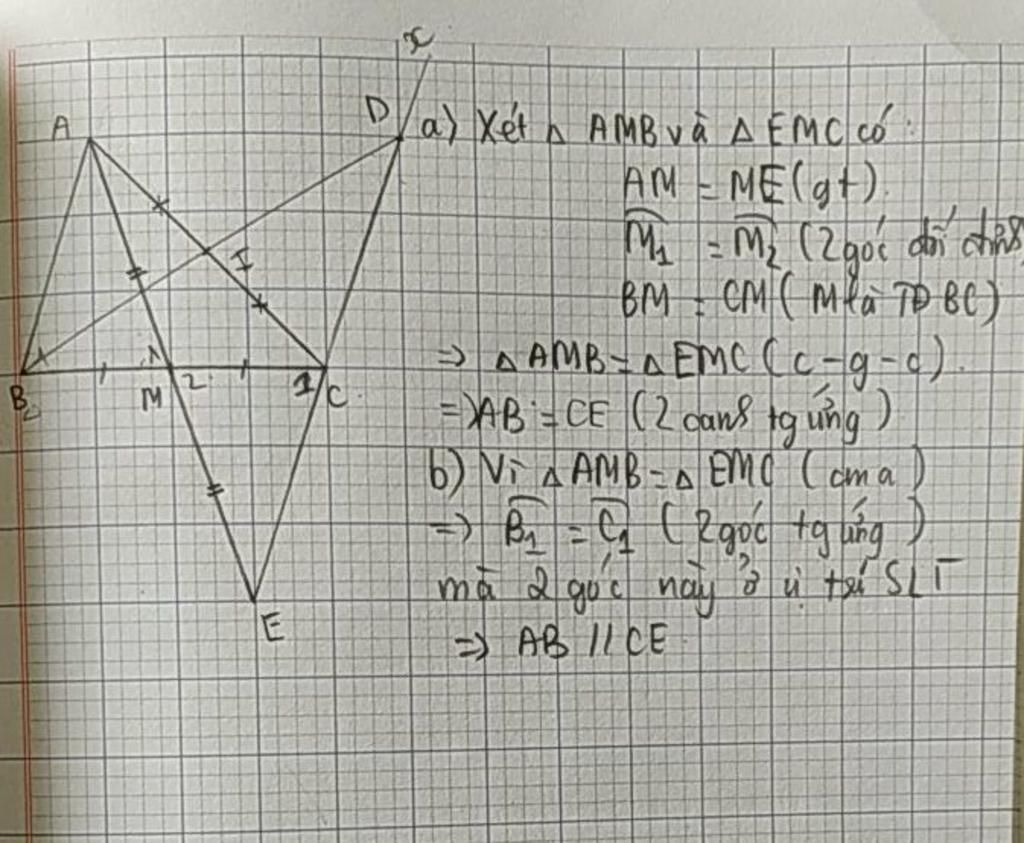 x
D
A
I
B
1
1
M
2
1
C
E
a) Xét △ AMB và △ EMC có :
AM = ME (gt).
M̂₁ = M̂₂ (2 góc đối đỉnh)
BM = CM ( M là TĐ BC)
=> △ AMB = △ EMC (c-g-c).
=> AB = CE (2 cạnh tg ứng)
b) Vì △ AMB = △ EMC (cm a)
=> B̂₁ = Ĉ₁ (2 góc tg ứng)
mà 2 góc này ở vị trí SLT
=> AB // CE